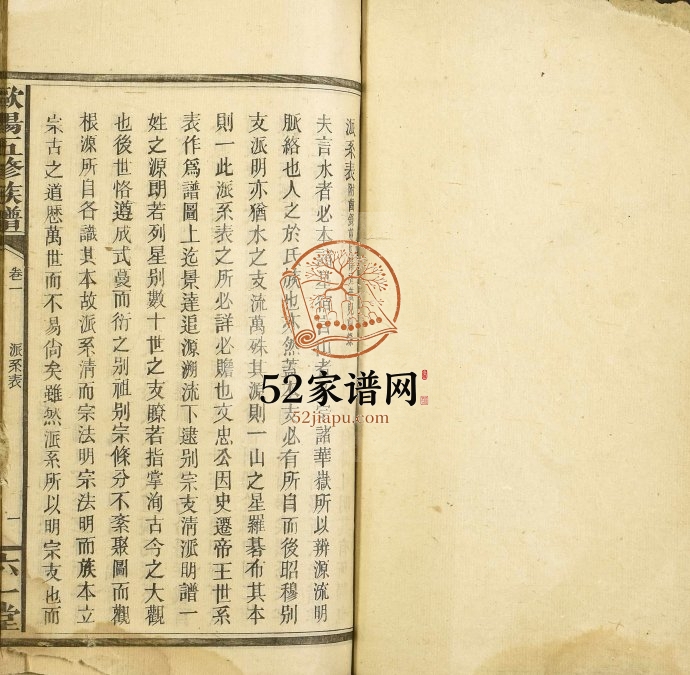 派系表
夫言水者必本諸華嶽所以辨源流明
脈絡也人之於氏族也亦然蓋支必有所自而後昭穆別
支派明亦猶水之支流萬殊其源則一山之星羅碁布其本
則一此派系表之所必詳必贍也文忠公因史遷帝王世系
表作爲譜圖上迄景達追源溯流下逮別宗支淸派明譜一
姓之源朗若列星別數十世之支瞭若指掌洵古今之大觀
也後世恪遵成式蔓而衍之別祖別宗條分不紊聚圖而觀
根源所自各識其本故派系淸而宗法明宗法明而族本立
崇古之道歷萬世而不易尙矣雖然派系所以明宗支也而
歐陽五修族譜
卷一
派系表
一
六一堂
52家谱网
52jiapu.com